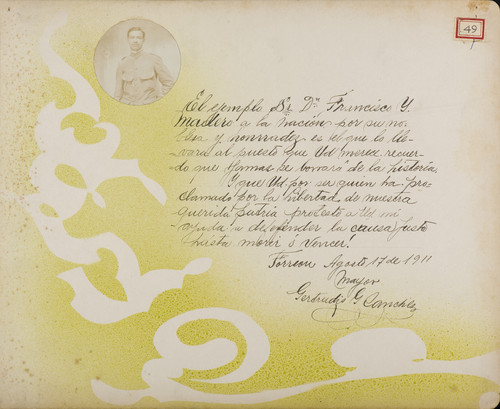 49
El ejemplo Sr. Dn. Francisco Y.
Madero a la nación por su no-
blesa y honrradez es el que lo lle-
vara al puesto que Ud merece recuer-
do que jamas se borrara de la historia
i que Ud. por ser quien ha pro-
clamado por la libertad de nuestra
querida patria protesto a Ud mi
ayuda a defender la causa justo
hasta morer ó vencer!
Torreon Agosto, 17 de 1911
Mayor
Gertrudis G. Sanchez